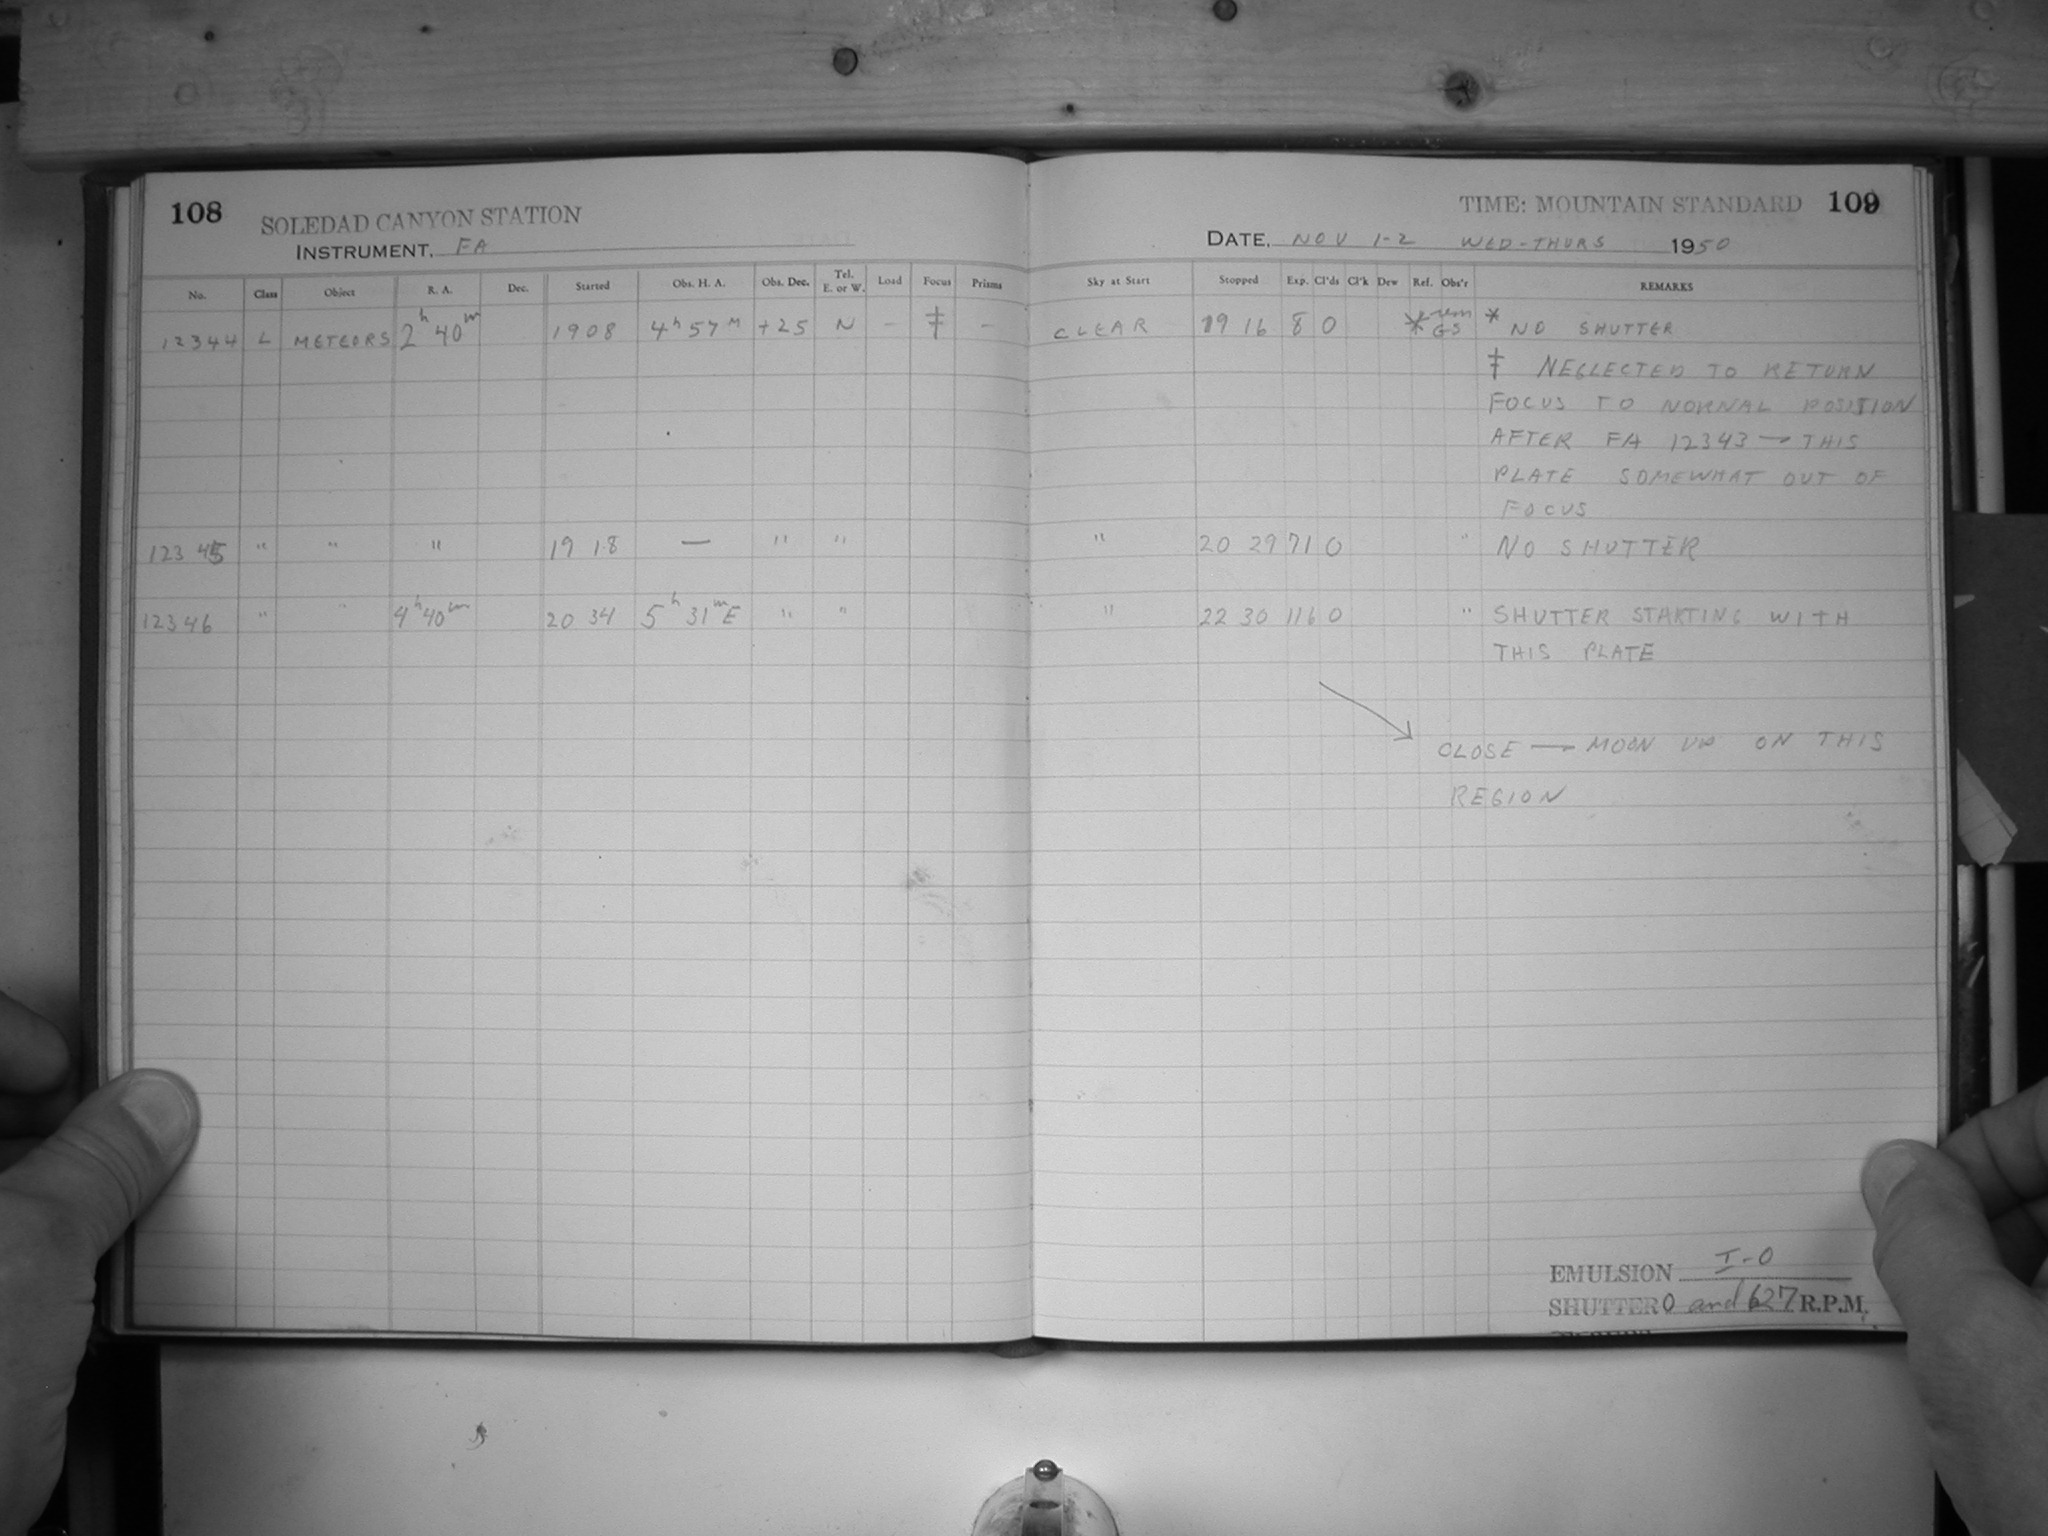 108 SOLEDAD CANYON STATION
INSTRUMENT, FA
No. Class Object R. A. Dec. Started Obs. H. A. Obs. Dec. Tel. E. or W. Load Focus Prisms
12344 L METEORS 2h 40m 1908 4h 57m +25 N - ‡ -
12345 " " " 19 18 — " "
12346 " " 4h 40m 20 34 5h 31m E " "
TIME: MOUNTAIN STANDARD 109
DATE, NOV 1-2 WED-THURS 1950
Sky at Start Stopped Exp. Cl'ds Cl'k Dew Ref. Obs'r REMARKS
CLEAR 19 16 8 0 * GS * NO SHUTTER
‡ NEGLECTED TO RETURN
FOCUS TO NORMAL POSITION
AFTER FA 12343 — THIS
PLATE SOMEWHAT OUT OF
FOCUS
" 20 29 71 0 " NO SHUTTER
" 22 30 116 0 " SHUTTER STARTING WITH
THIS PLATE
CLOSE — MOON UP ON THIS
REGION
EMULSION I-O
SHUTTER 0 and 627 R.P.M.